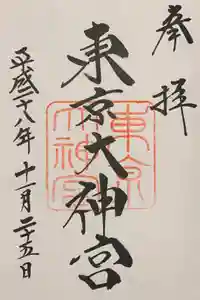 奉拝
東京大神宮
平成二十八年十一月二十五日
東京
大神宮